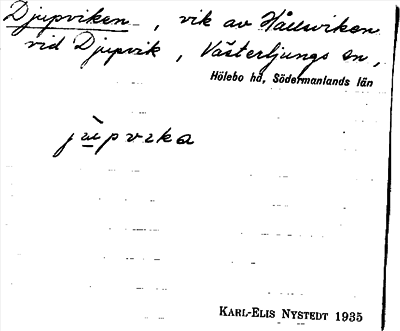 Djupviken, vik av Hållsviken
vid Djupvik, Västerljungs sn,
Hölebo hd, Södermanlands län
KARL-ELIS NYSTEDT 1935